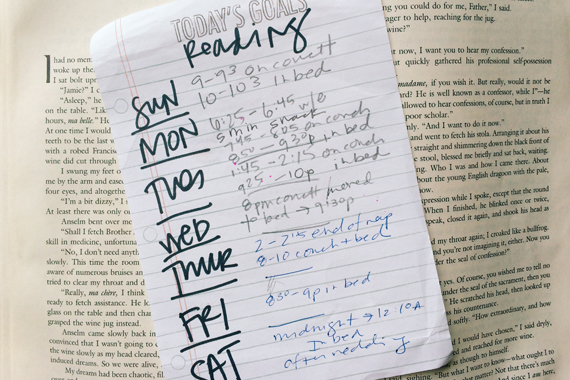 TODAY'S GOALS
Reading
SUN
9-9³ on couch
10-10³ in bed
MON
6:25-6:45 w/o
5 min snack
7:45-8:05 on couch
850-930p in bed
TUES
1:45-2:15 on couch
925-10p in bed
WED
8pm couch moved
to bed → 9:30p
THUR
2-2:15 end of nap
8-10 couch + bed
FRI
830-9p in bed
SAT
midnight → 12:10A
In bed
after wedding
I had no mem
woke up the
I sat bolt up
"Jamie?" I
"Asleep," he
on the table. "Lik
hours, ma belle." He
At one time I would
teeth to be the last w
with a robed Francis
wine did cut through
I swung my feet
me by the arm and ease
four eyes, and altogethe
"I'm a bit dizzy," I
At least there was only o
Anselm bent over me
"Shall I fetch Brother
skill in medicine, unfortuna
"No, I don't need anyth
slowly. This time the room
aware of numerous bruises an
tried to clear my throat and d
"Really, ma chère, I think
ready to fetch assistance. He lo
glass on the table and then cha
grasped the wine jug instead.
Anselm came slowly back in
convinced that I wasn't going to c
the wine slowly as my head cleared,
induced dreams. So we were alive,
My dreams had been chaotic, fil
you could do for me, Father," I said.
ager to help, reaching for the jug.
wine?"
now, I want you to hear my confession."
quickly gathered his professional self-possession
madame, if you wish it. But really, would it not be
ard? He is well known as a confessor, while I"—he
allowed to hear confessions, of course, but in truth I
poor scholar."
"And I want to do it now."
and went to fetch his stola. Arranging it about his
straight and shimmering down the black front of
stool, blessed me briefly and sat back, waiting.
Who I was and how I came there. About
about the young English dragoon with the pale,
pression while I spoke, except the round
When I finished, he blinked once or twice,
speak, closed it again, and shook his head as
my throat again; I croaked like a bullfrog.
and you're not imagining it, either. Now you
the seal of confession?"
yes. Of course, you wished me to tell no
under the seal of the sacrament, then you
He scratched his head, then looked up
softly. "How extraordinary, and how
I would have chosen," I said dryly,
and reached for more wine.
as though to himself.
"But what I want to know—what ought I to
maybe thousands? Not that there's much